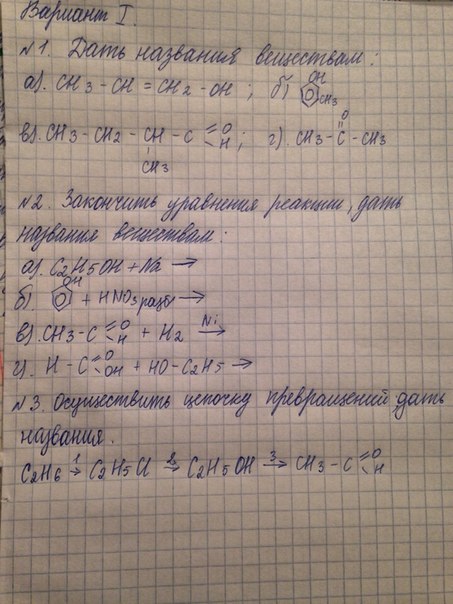 Вариант I.
№1. Дать названия веществам:
а). CH3 - CH = CH2 - OH ; б) OH CH3
в). CH3 - CH2 - CH - C =O H ; г). CH3 - C - CH3 O
CH3
№2. Закончить уравнения реакции, дать
названия веществам:
а). C2H5OH + Na →
б). OH + HNO3 разб →
в). CH3 - C =O H + H2 Ni →
г). H - C =O OH + HO - C2H5 →
№3. Осуществить цепочку превращений, дать
названия.
C2H6 1→ C2H5Cl 2→ C2H5OH 3→ CH3 - C =O H